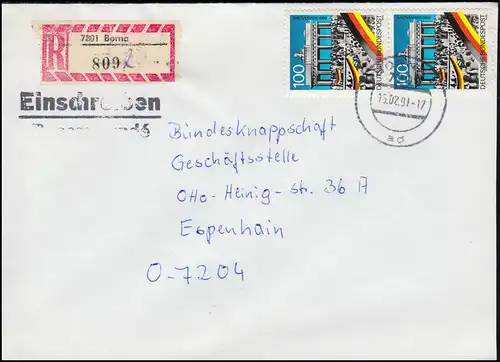 7201 Borna
R
809
100
DEUTSCHE BUNDESPOST
100
DEUTSCHE BUNDESPOST
Einschreiben
15.02.91-17
ad
Bundesknappschaft
Geschäftsstelle
Otto-Heinig-str. 36 A
Espenhain
O-7204